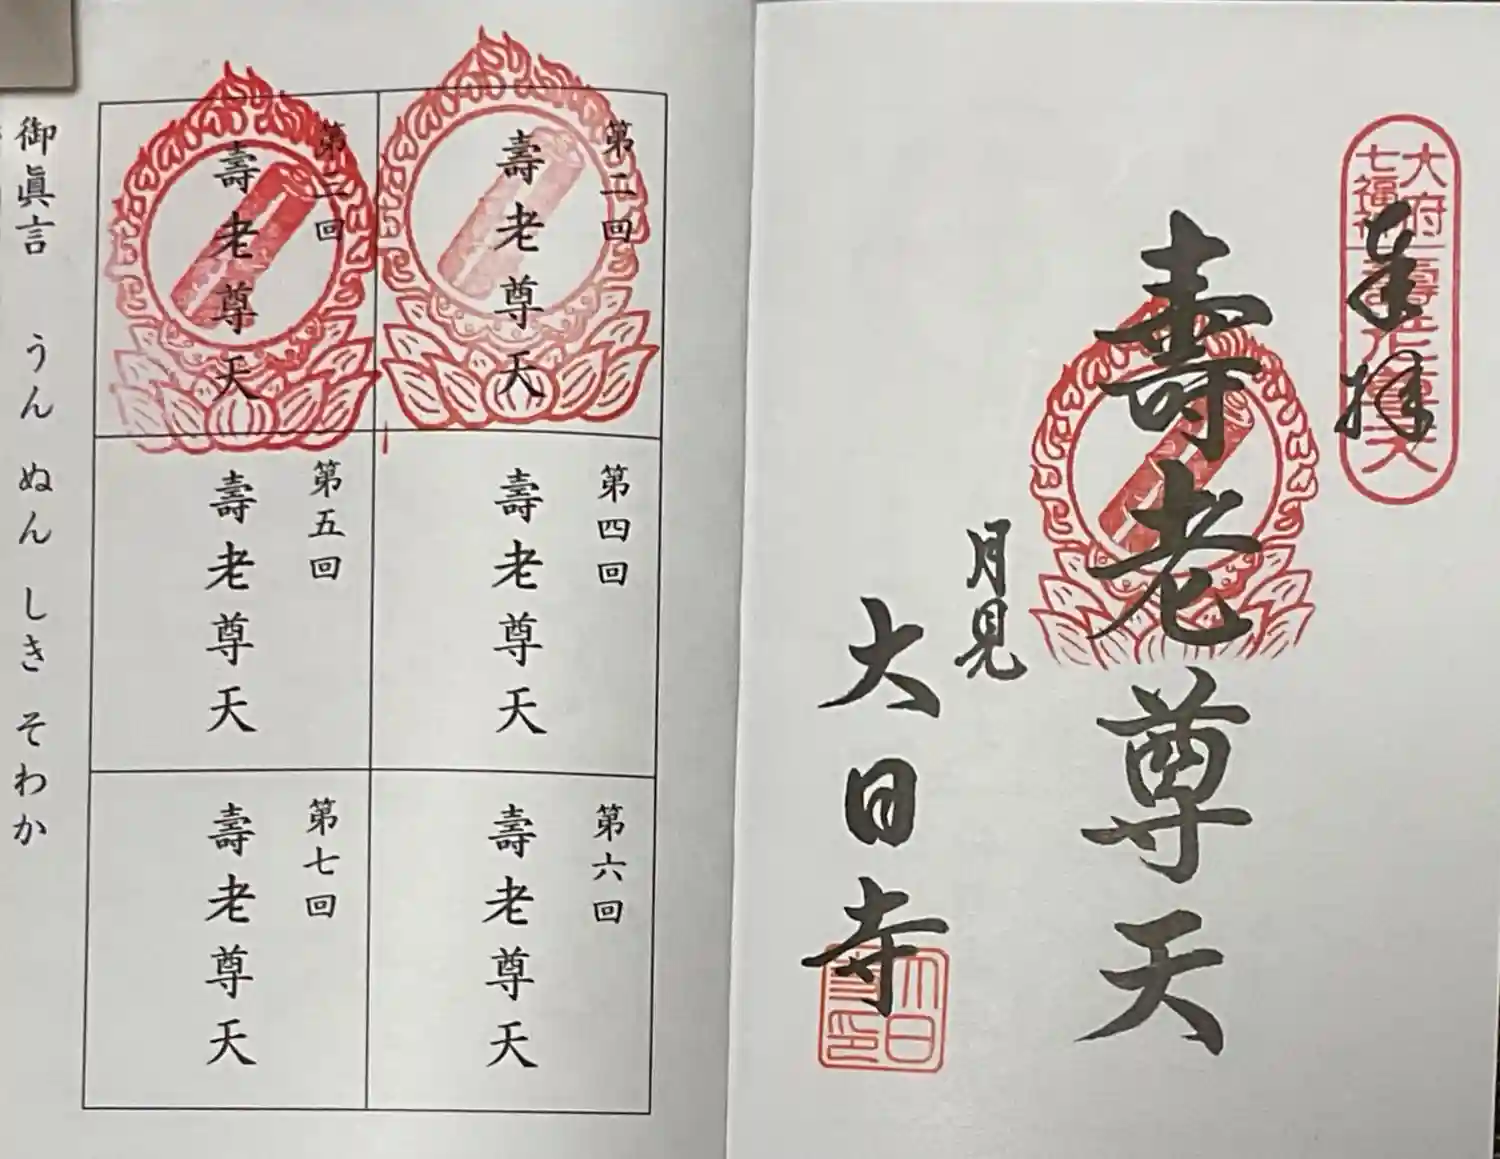 大府
七福神
壽老尊天
奉拝
壽老尊天
月見
大日寺
大日寺印
第二回
壽老尊天
第三回
壽老尊天
第四回
壽老尊天
第五回
壽老尊天
第六回
壽老尊天
第七回
壽老尊天
御眞言 うん ぬん しき そわか